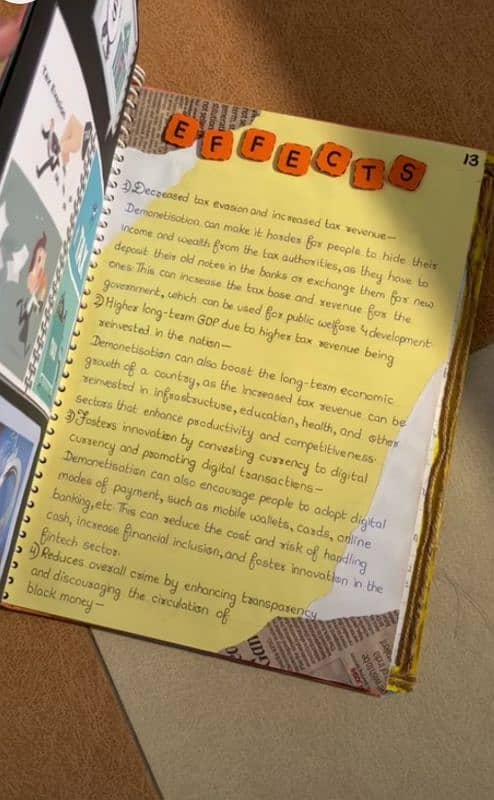 Tax Evasion
13
EFFECTS
1) Decreased tax evasion and increased tax revenue—
Demonetisation can make it harder for people to hide their
income and wealth from the tax authorities, as they have to
deposit their old notes in the banks or exchange them for new
ones. This can increase the tax base and revenue for the
government, which can be used for public welfare & development.
2) Higher long-term GDP due to higher tax revenue being
reinvested in the nation—
Demonetisation can also boost the long-term economic
growth of a country, as the increased tax revenue can be
reinvested in infrastructure, education, health, and other
sectors that enhance productivity and competitiveness.
3) Fosters innovation by converting currency to digital
currency and promoting digital transactions—
Demonetisation can also encourage people to adopt digital
modes of payment, such as mobile wallets, cards, online
banking, etc. This can reduce the cost and risk of handling
cash, increase financial inclusion, and foster innovation in the
fintech sector.
4) Reduces overall crime by enhancing transparency
and discouraging the circulation of
black money—